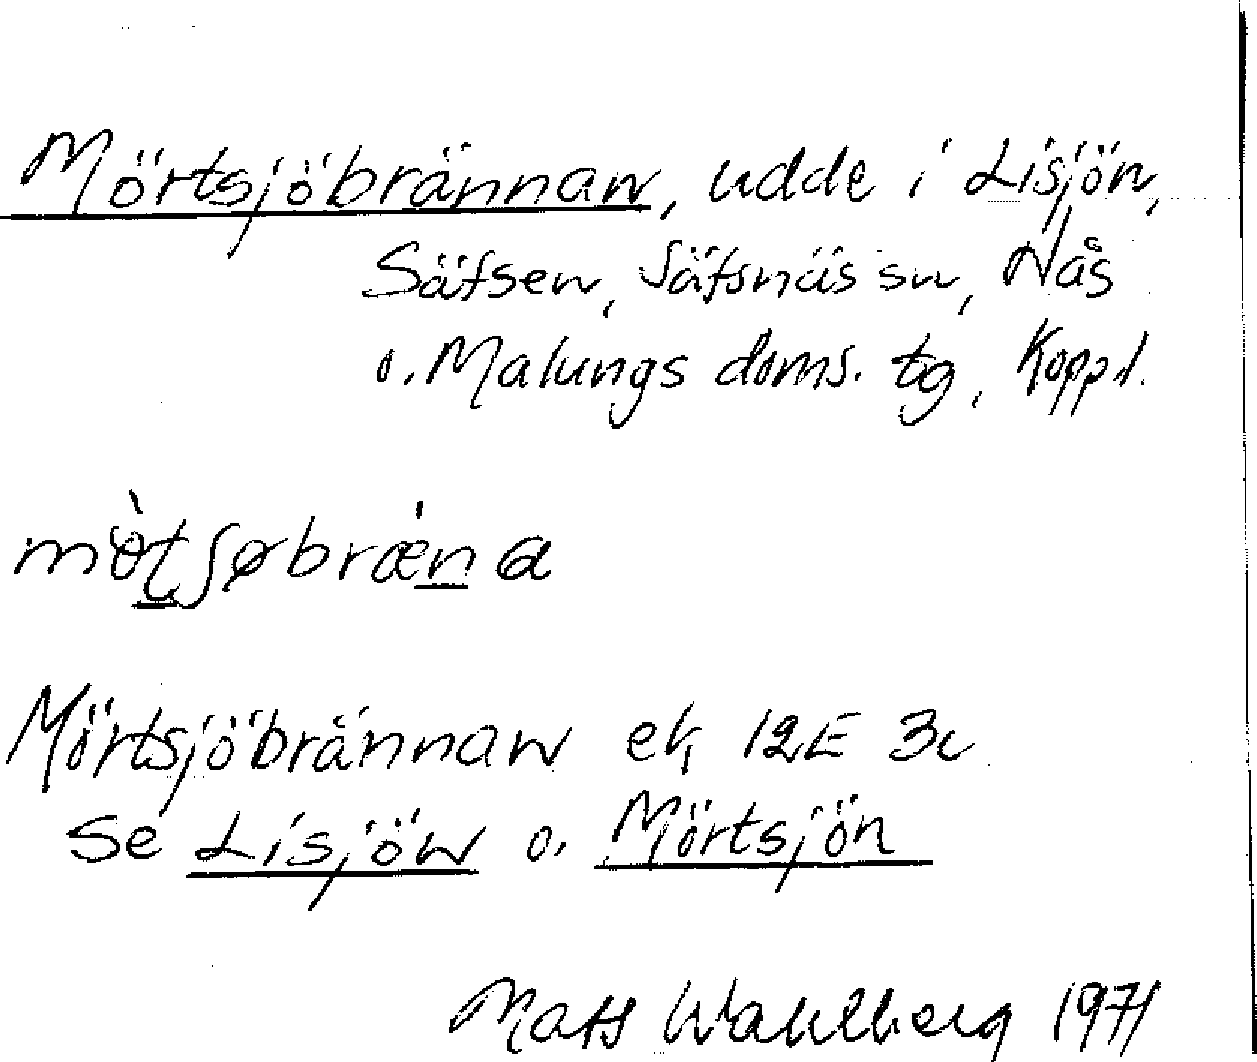 Mörtsjöbrännan, udde i Lisjön,
Säfsen, Säfsnäs sn, Nås
o. Malungs doms. tg, Koppl.
mø̀tʃøbrǽna
Mörtsjöbrännan ek 12E 3c
Se Lisjön o. Mörtsjön
Mats Wahlberg 1971